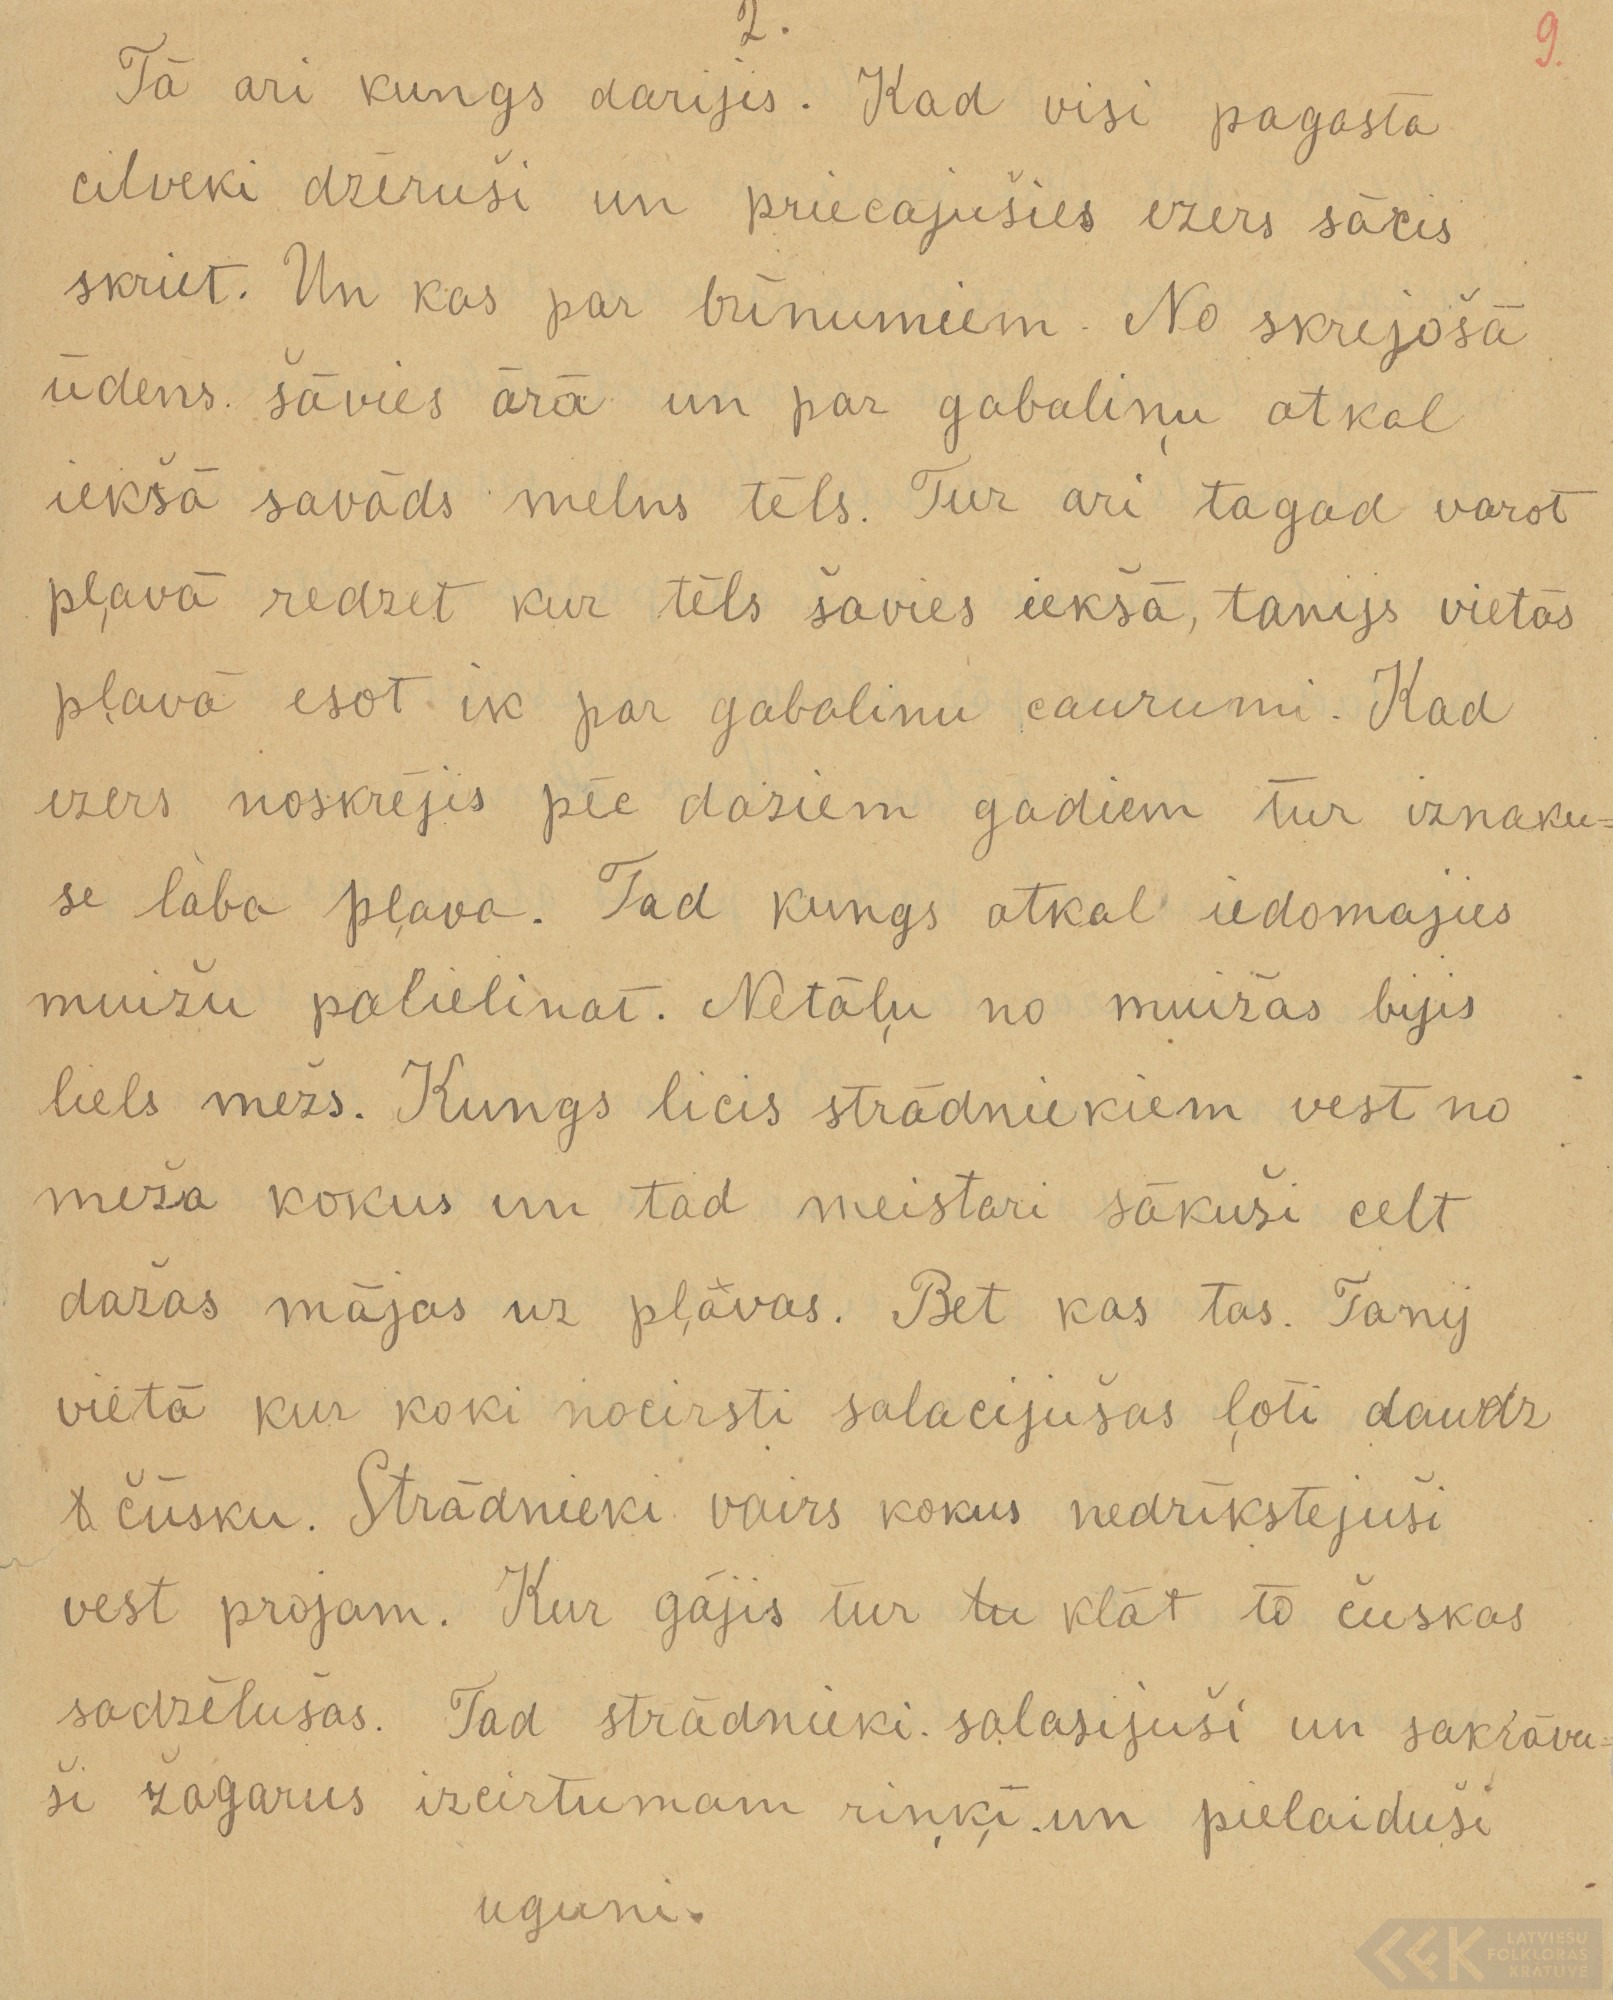 2.
9.
Tā ari kungs darijis. Kad visi pagasta
cilveki dzēruši un priecajušies ezers sācis
skriet. Un kas par brīnumiem. No skrejošā
ūdens. šāvies ārā un par gabaliņu atkal
iekšā savāds melns tēls. Tur ari tagad varot
pļavā redzet kur tēls šavies iekšā, tanijs vietās
pļavā esot ik par gabalinu caurumi. Kad
ezers noskrējis pēc daziem gadiem tur iznaku=
se laba pļava. Tad kungs atkal iedomajies
muižu palielinat. Netāļu no muižas bijis
liels mežs. Kungs licis strādniekiem vest no
meža kokus un tad meistari sākuši celt
dažas mājas uz pļavas. Bet kas tas. Tanij
vietā kur koki nocirsti salacijušas ļoti daudz
čūsku. Strādnieki vairs kokus nedrīkstejuši
vest projam. Kur gājis tur tu klāt to čuskas
sadzēlušas. Tad strādnieki. salasijuši un sakrāvu=
ši žagarus izcirtumam riņķī. un pielaiduši
uguni.
LATVIEŠU
FOLKLORAS
KRĀTUVE